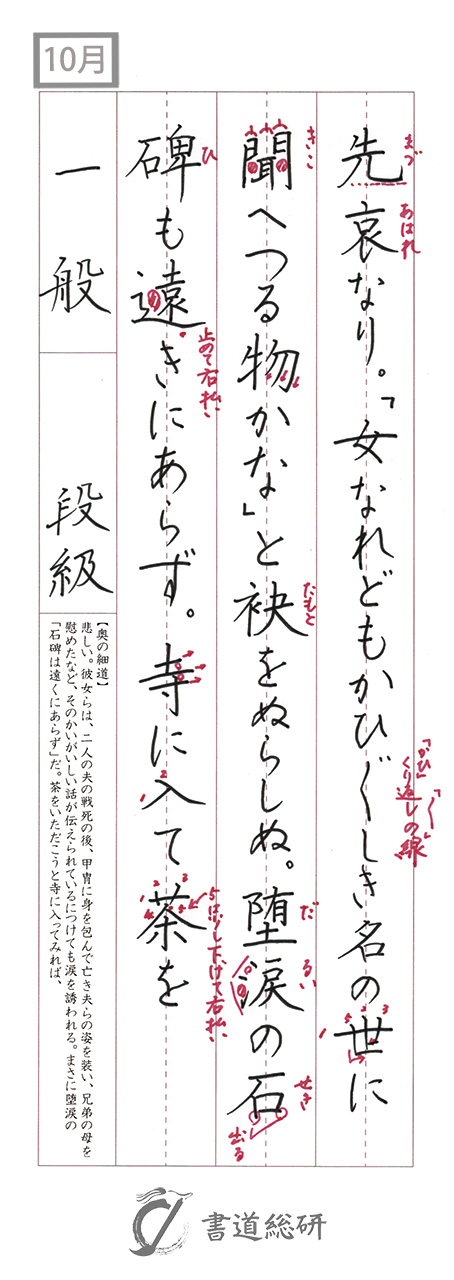 10月
先哀なり。「女なれどもかひ〲しき名の世に
まづ
あはれ
「かひ」
くり返しの線
聞へつる物かな」と袂をぬらしぬ。堕涙の石
きこ
たもと
だ
るい
せき
出る
碑も遠きにあらず。寺に入て茶を
ひ
止めて右払い
5は少し下げて右払い
一般
段級
【奥の細道】
悲しい。彼女らは、二人の夫の戦死の後、甲冑に身を包んで亡き夫らの姿を装い、兄弟の母を
慰めたなど、そのかいがいしい話が伝えられているにつけても涙を誘われる。まさに堕涙の
「石碑は遠くにあらず」だ。茶をいただこうと寺に入ってみれば、
書道総研